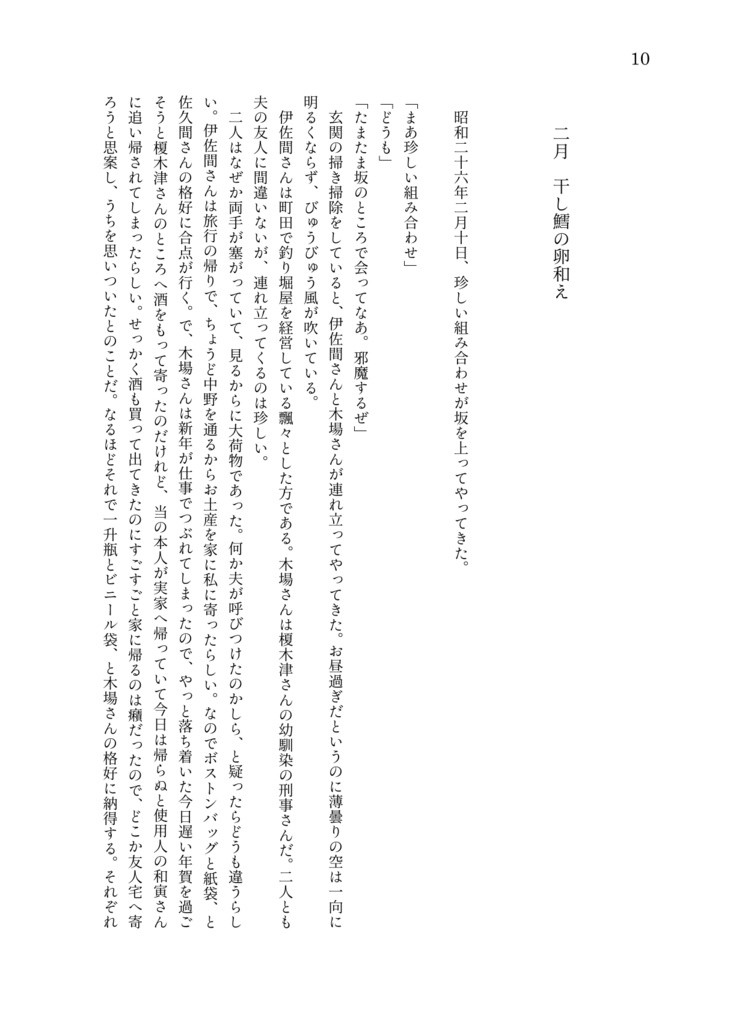 10
二月　干し鱈の卵和え
昭和二十六年二月十日、珍しい組み合わせが坂を上ってやってきた。
「まあ珍しい組み合わせ」
「どうも」
「たまたま坂のところで会ってなあ。邪魔するぜ」
玄関の掃き掃除をしていると、伊佐間さんと木場さんが連れ立ってやってきた。お昼過ぎだというのに薄曇りの空は一向に
明るくならず、びゅうびゅう風が吹いている。
伊佐間さんは町田で釣り堀屋を経営している飄々とした方である。木場さんは榎木津さんの幼馴染の刑事さんだ。二人とも
夫の友人に間違いないが、連れ立ってくるのは珍しい。
二人はなぜか両手が塞がっていて、見るからに大荷物であった。何か夫が呼びつけたのかしら、と疑ったらどうも違うらし
い。伊佐間さんは旅行の帰りで、ちょうど中野を通るからお土産を家に私に寄ったらしい。なのでボストンバッグと紙袋、と
佐久間さんの格好に合点が行く。で、木場さんは新年が仕事でつぶれてしまったので、やっと落ち着いた今日遅い年賀を過ご
そうと榎木津さんのところへ酒をもって寄ったのだけれど、当の本人が実家へ帰っていて今日は帰らぬと使用人の和寅さん
に追い帰されてしまったらしい。せっかく酒も買って出てきたのにすごすごと家に帰るのは癪だったので、どこか友人宅へ寄
ろうと思案し、うちを思いついたとのことだ。なるほどそれで一升瓶とビニール袋、と木場さんの格好に納得する。それぞれ